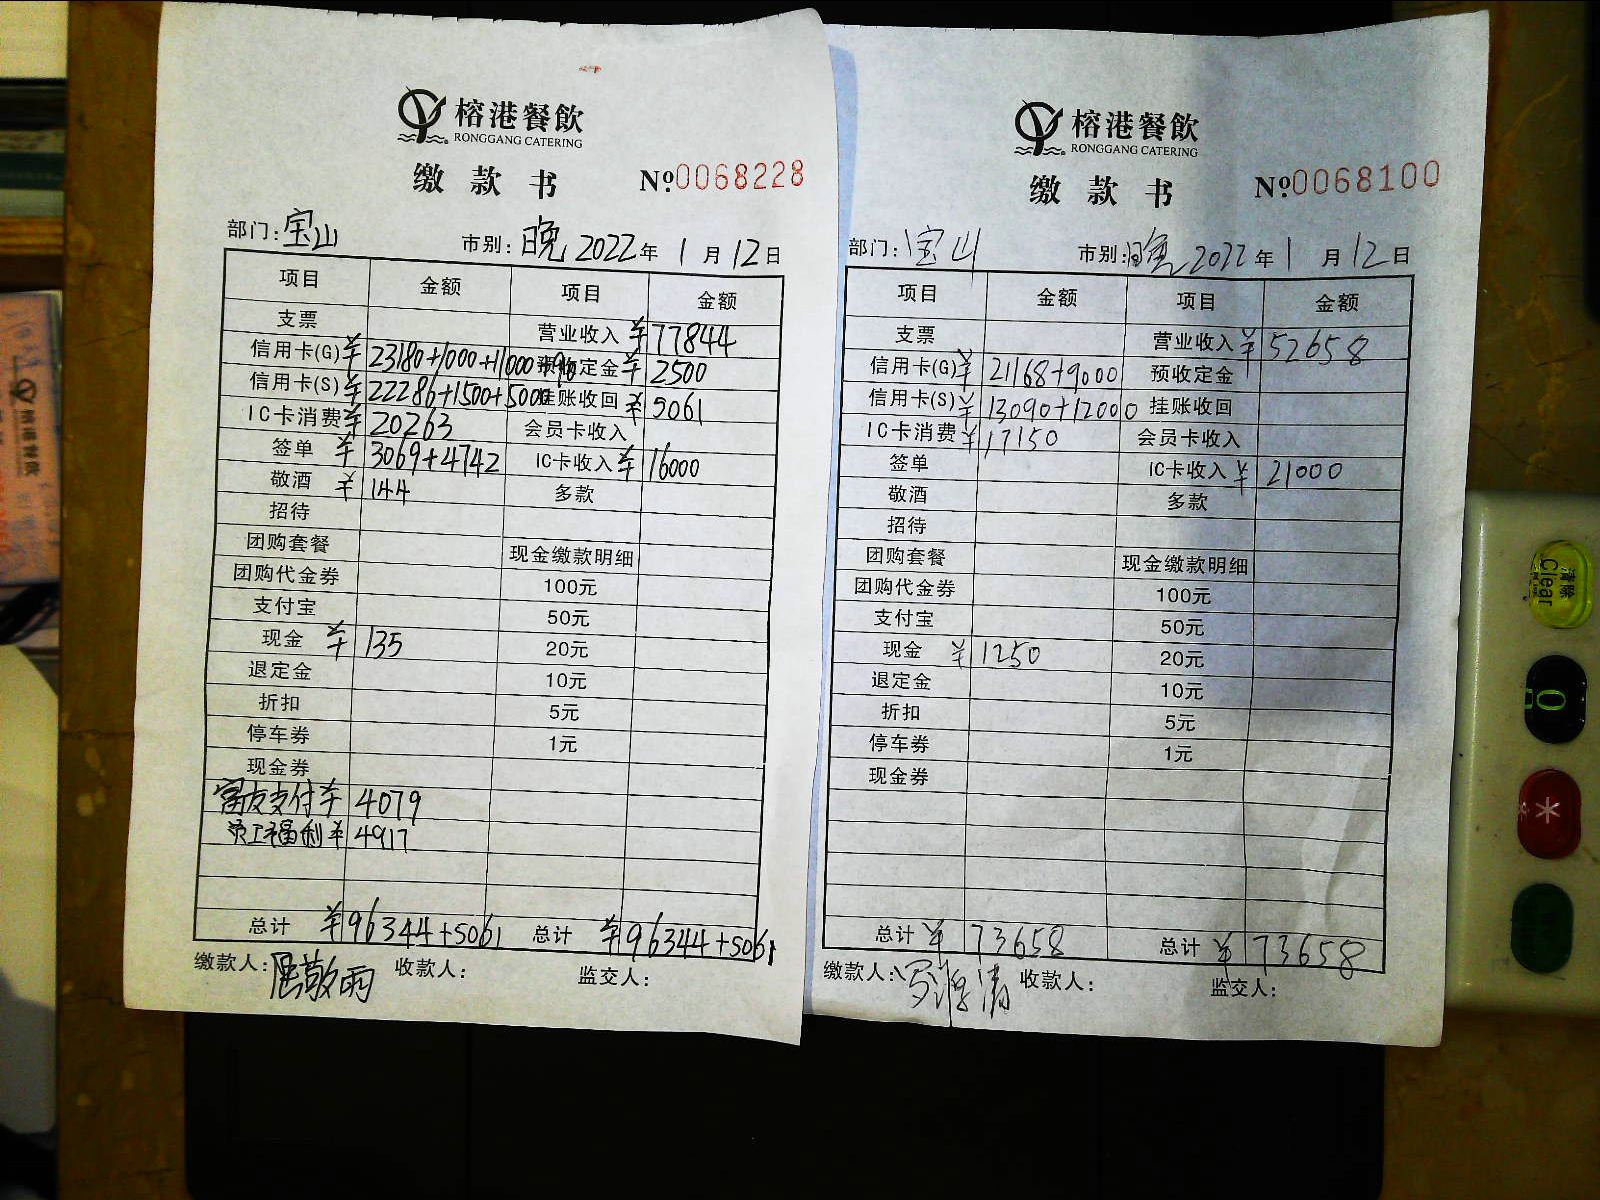 榕港餐飲
RONGGANG CATERING
缴款书
№0068228
部门:宝山 市别:晚 2022年1月12日
项目 金额 项目 金额
支票 营业收入 ¥77844
信用卡(G) ¥23180+1000+11000+90 预收定金 ¥2500
信用卡(S) ¥22286+1500+5000 挂账收回 ¥5061
IC卡消费 ¥20263 会员卡收入
签单 ¥3069+4742 IC卡收入 ¥16000
敬酒 ¥144 多款
招待
团购套餐 现金缴款明细
团购代金券 100元
支付宝 50元
现金 ¥135 20元
退定金 10元
折扣 5元
停车券 1元
现金券
富友支付 ¥4079
员工福利 ¥4917
总计 ¥96344+5061 总计 ¥96344+5061
缴款人: 收款人: 监交人:
榕港餐飲
RONGGANG CATERING
缴款书
№0068100
部门:宝山 市别:晚 2022年1月12日
项目 金额 项目 金额
支票 营业收入 ¥52658
信用卡(G) ¥21168+9000 预收定金
信用卡(S) ¥13090+12000 挂账收回
IC卡消费 ¥17150 会员卡收入
签单 IC卡收入 ¥21000
敬酒 多款
招待
团购套餐 现金缴款明细
团购代金券 100元
支付宝 50元
现金 ¥1250 20元
退定金 10元
折扣 5元
停车券 1元
现金券
总计 ¥73658 总计 ¥73658
缴款人: 收款人: 监交人:
清除
Clear
0
*